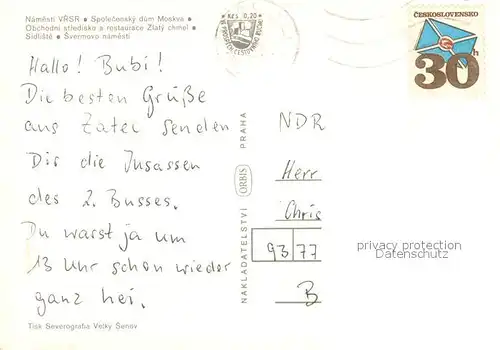 Náměstí VŘSR • Společenský dům Moskva •
Obchodní středisko a restaurace Zlatý chmel •
Sídliště • Švermovo náměstí
Hallo! Bubi!
Die besten Grüße
aus Zatec senden
Dir die Insassen
des 2. Busses.
Du warst ja um
13 Uhr schon wieder
ganz hei.
Tisk Severografia Velký Šenov
NAKLADATELSTVÍ ORBIS PRAHA
Kčs 0,20
ČESKOSLOVENSKO
30h
NDR
Herr
Chris
93 77
B
privacy protection
Datenschutz